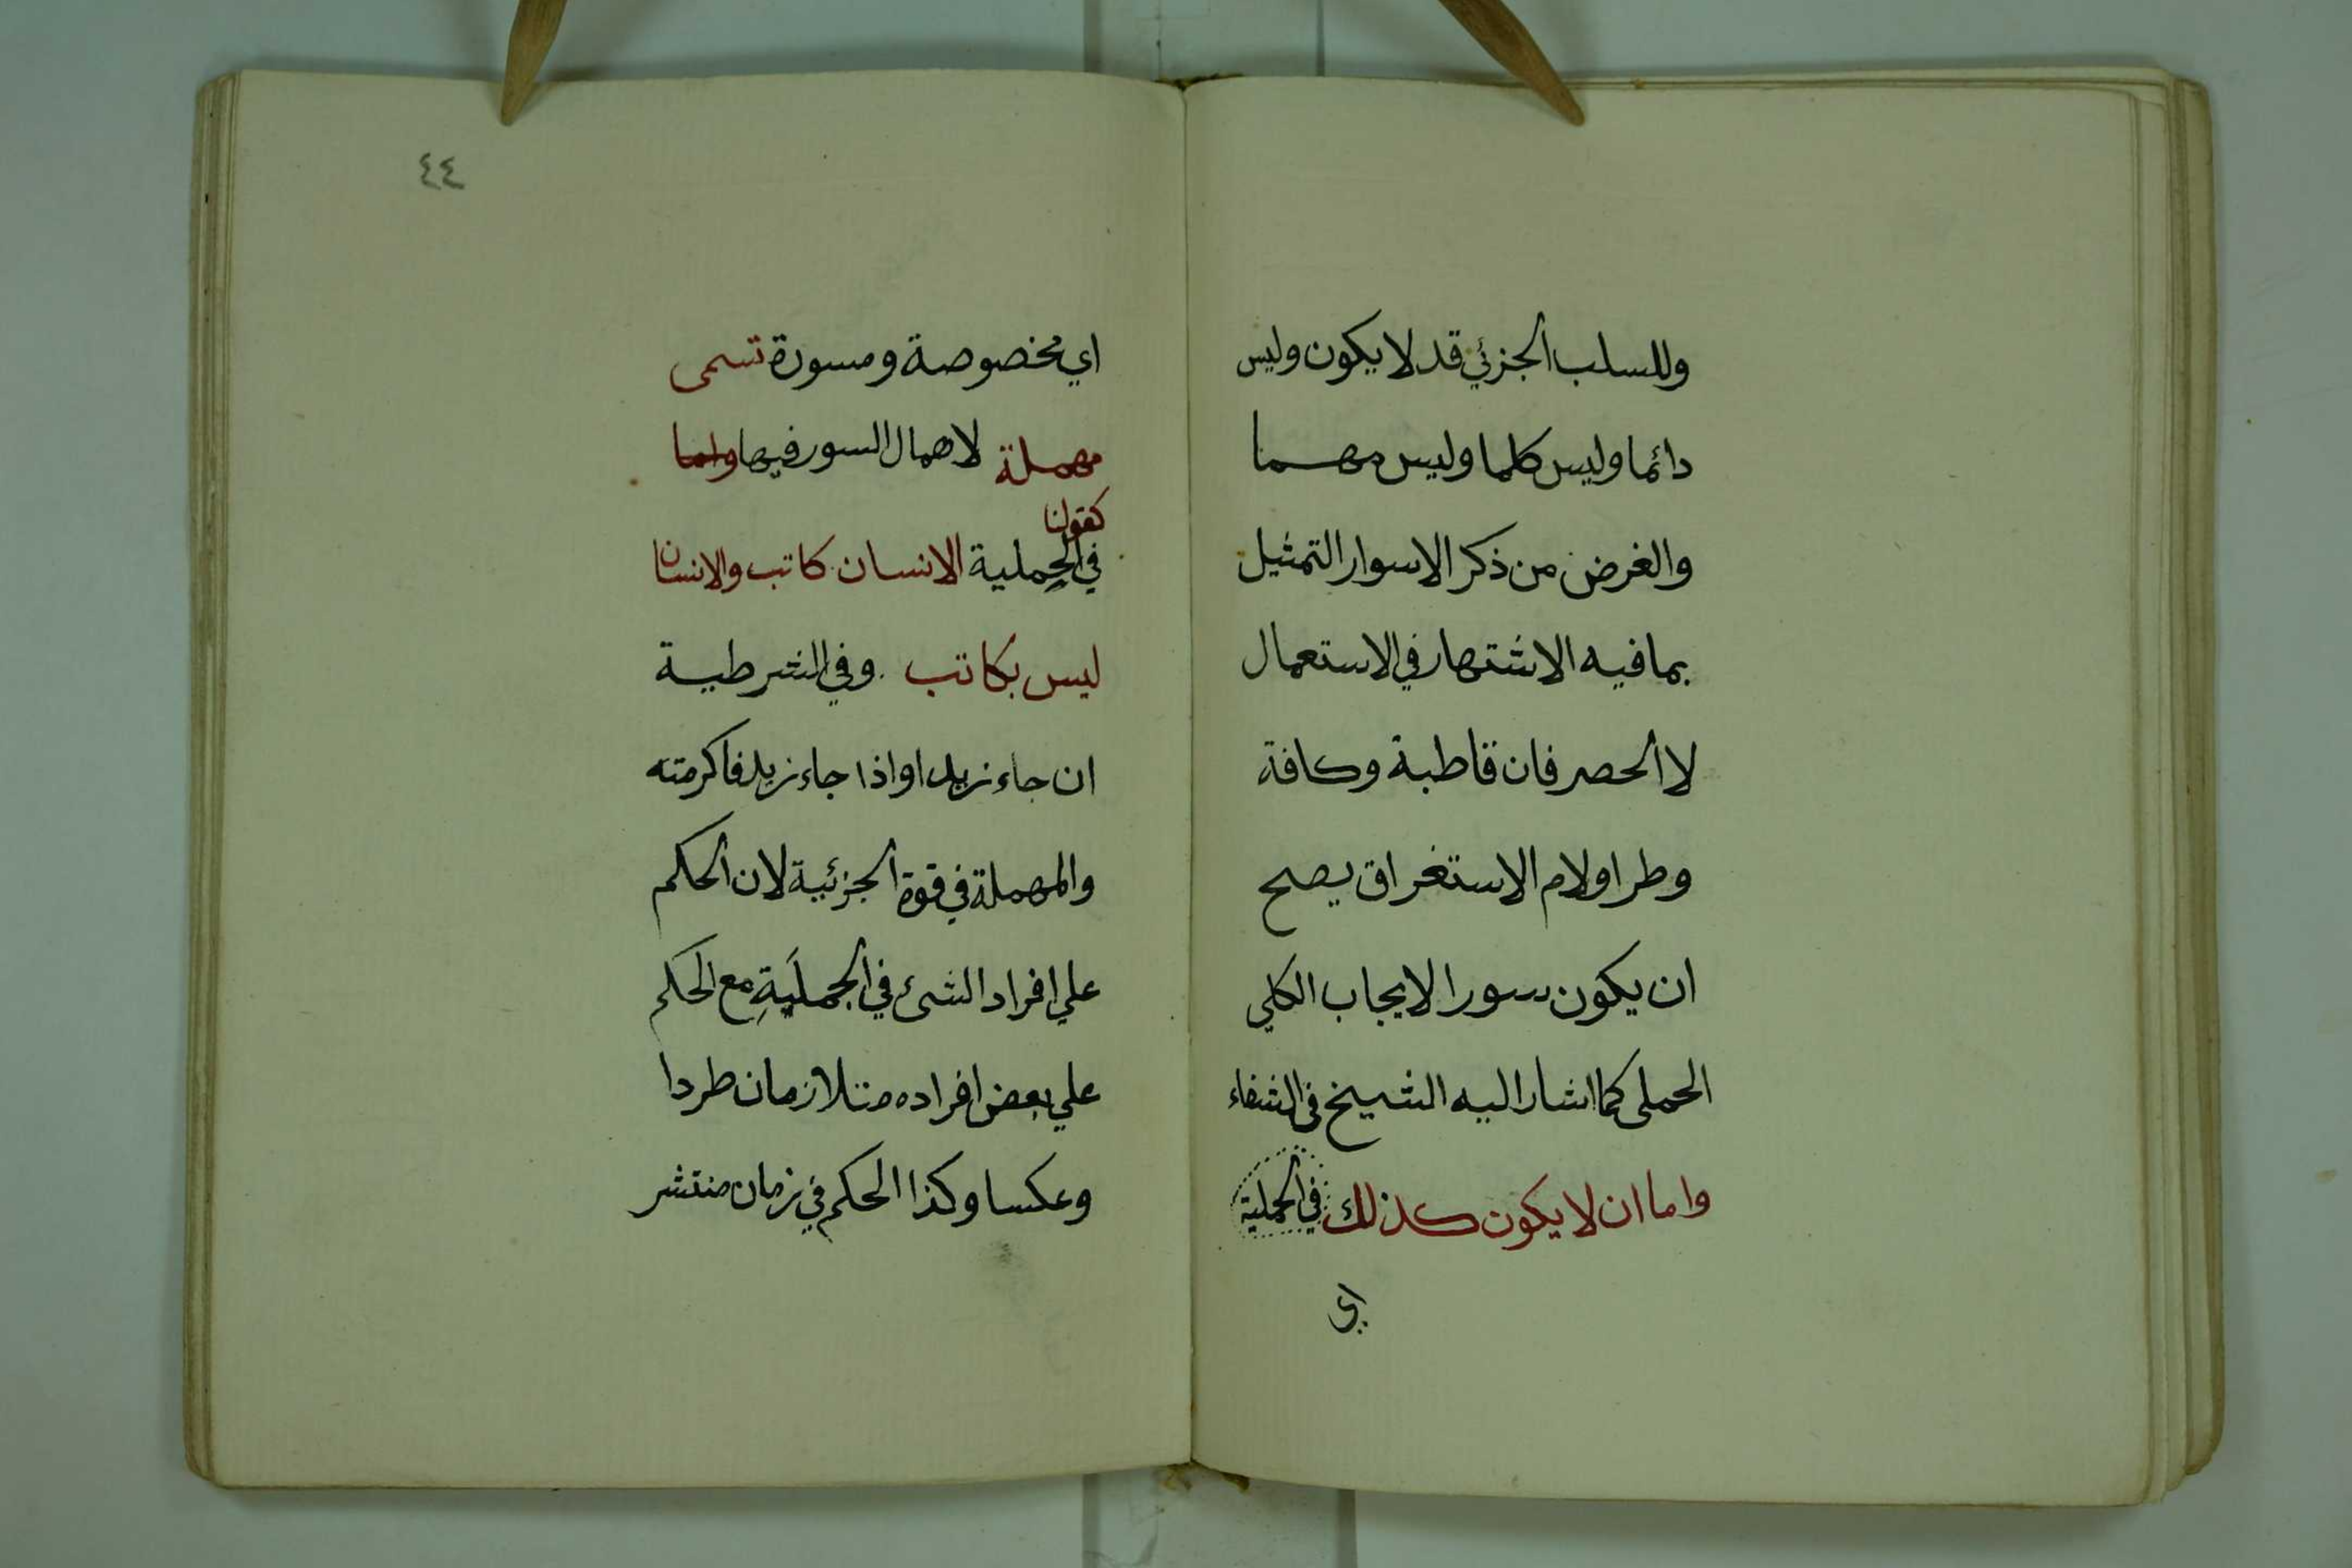 وللسلب الجزئي قد لا يكون وليس
دائما وليس كلما وليس مهما
والغرض من ذكر الاسوار التمثيل
بما فيه الاشتهار في الاستعمال
لا الحصر فان قاطبة وكافة
وطرا ولام الاستغراق يصح
ان يكون سور الايجاب الكلي
الحملى كما اشار اليه الشيخ في الشفاء
واما ان لا يكون كذلك في الحملية
اي
٤٤
اي مخصوصة ومسورة تسمى
مهملة لاهمال السور فيها واما
كقولنا
في الحملية الانسان كاتب والانسان
ليس بكاتب وفي الشرطية
ان جاء زيد او اذا جاء زيد فاكرمته
والمهملة في قوة الجزئية لان الحكم
علي افراد الشئ في الجملَيةِ مع الحكم
علي بعض افراده متلازمان طردا
وعكسا وكذا الحكم في زمان منتشر